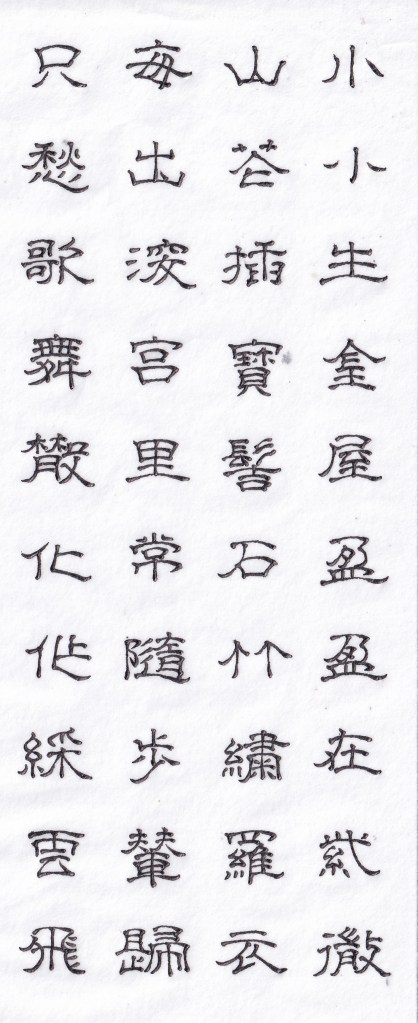 小小生金屋盈盈在紫微
山花插寶髻石竹繡羅衣
每出深宮里常隨步輦歸
只愁歌舞散化作綵雲飛